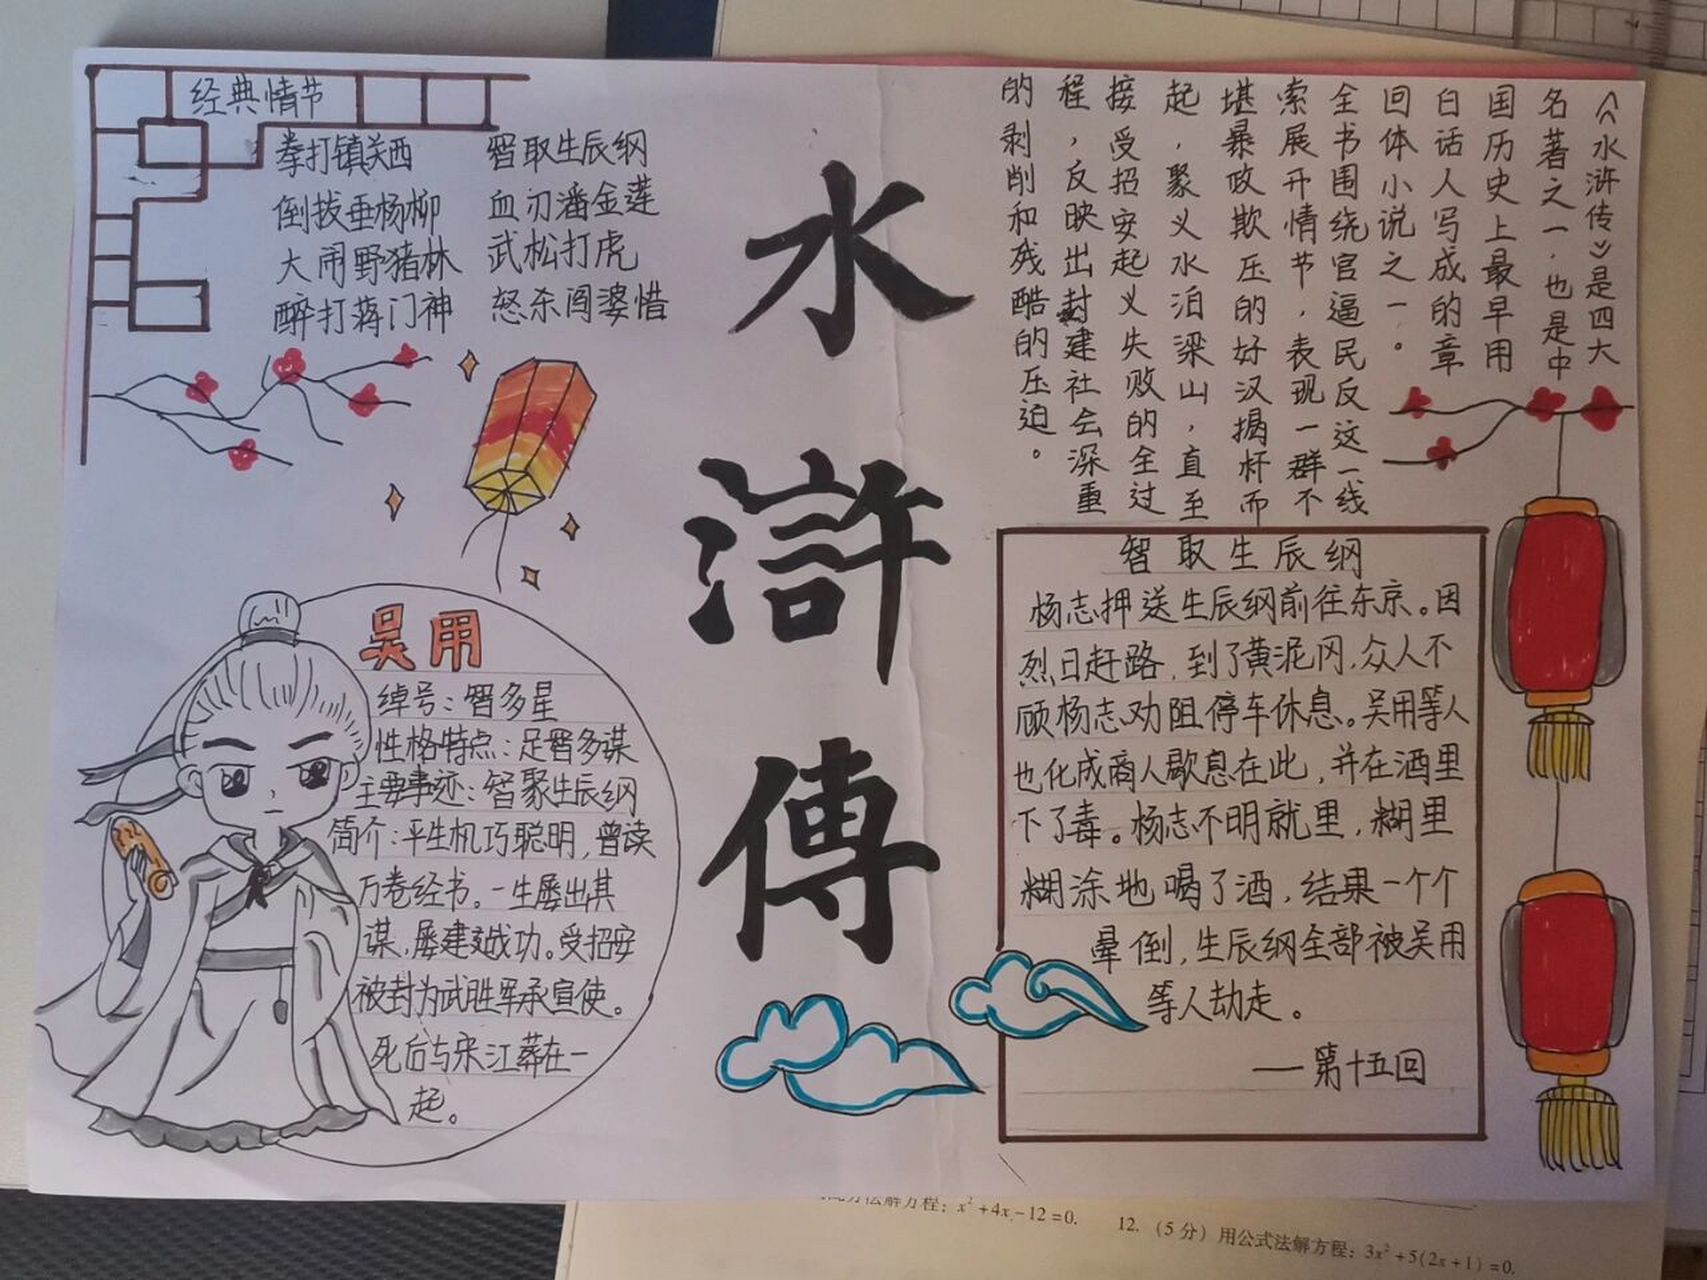 经典情节
拳打镇关西
倒拔垂杨柳
大闹野猪林
醉打蒋门神
智取生辰纲
血刃潘金莲
武松打虎
怒杀阎婆惜
水滸傳
《水浒传》是四大
名著之一，也是中
国历史上最早用
白话人写成的章
回体小说之一。
全书围绕官逼民反这一线
索展开情节，表现一群不
堪暴政欺压的好汉揭杆而
起，聚义水泊梁山，直至
接受招安起义失败的全过
程，反映出封建社会深重
的剥削和残酷的压迫。
吴用
绰号：智多星
性格特点：足智多谋
主要事迹：智聚生辰纲
简介：平生机巧聪明，曾读
万卷经书。一生屡出其
谋，屡建战功。受招安
被封为武胜军承宣使。
死后与宋江葬在一
起。
智取生辰纲
杨志押送生辰纲前往东京。因
烈日赶路，到了黄泥冈，众人不
顾杨志劝阻停车休息。吴用等人
也化成商人歇息在此，并在酒里
下了毒。杨志不明就里，糊里
糊涂地喝了酒，结果一个个
晕倒，生辰纲全部被吴用
等人劫走。
——第十五回
方法解方程：x²+4x-12=0.
12.（5分）用公式法解方程：3x²+5(2x+1)=0.